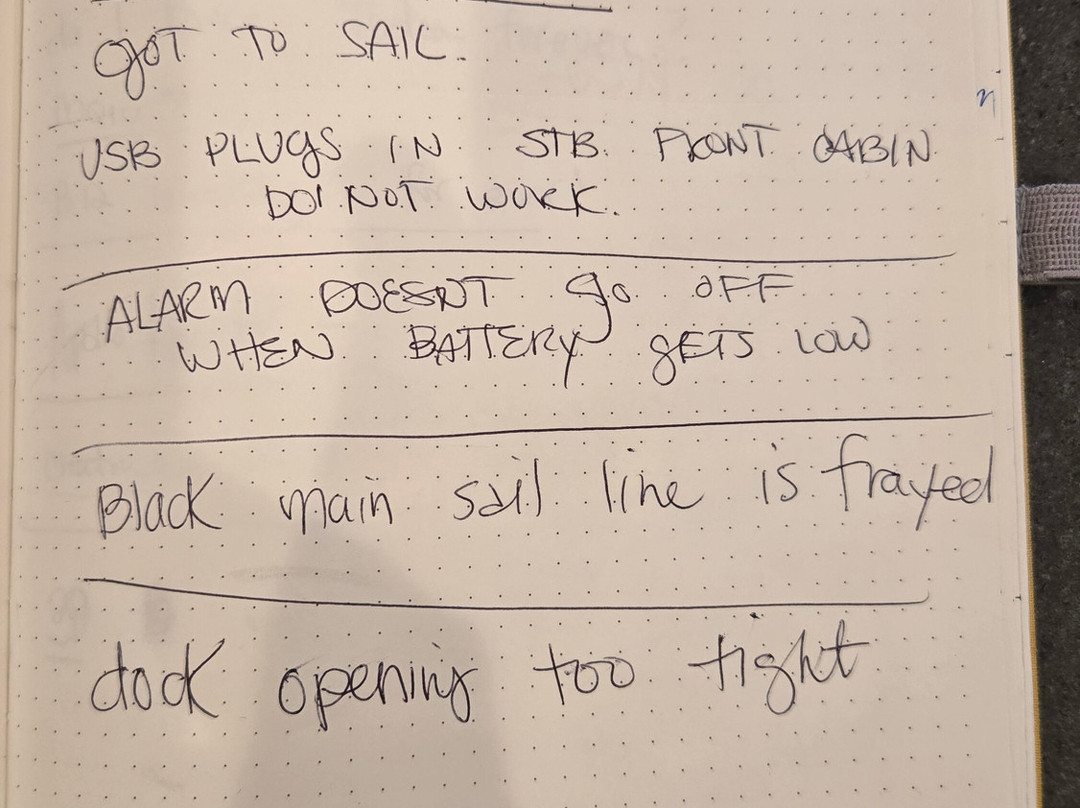 goT TO SAIL.
USB PLUGS IN STB. FRONT CABIN
DO NOT WORK.
ALARM DOESNT go OFF
WHEN BATTERY gETS LOW
Black main sail line is frayed
dock opening too tight
n